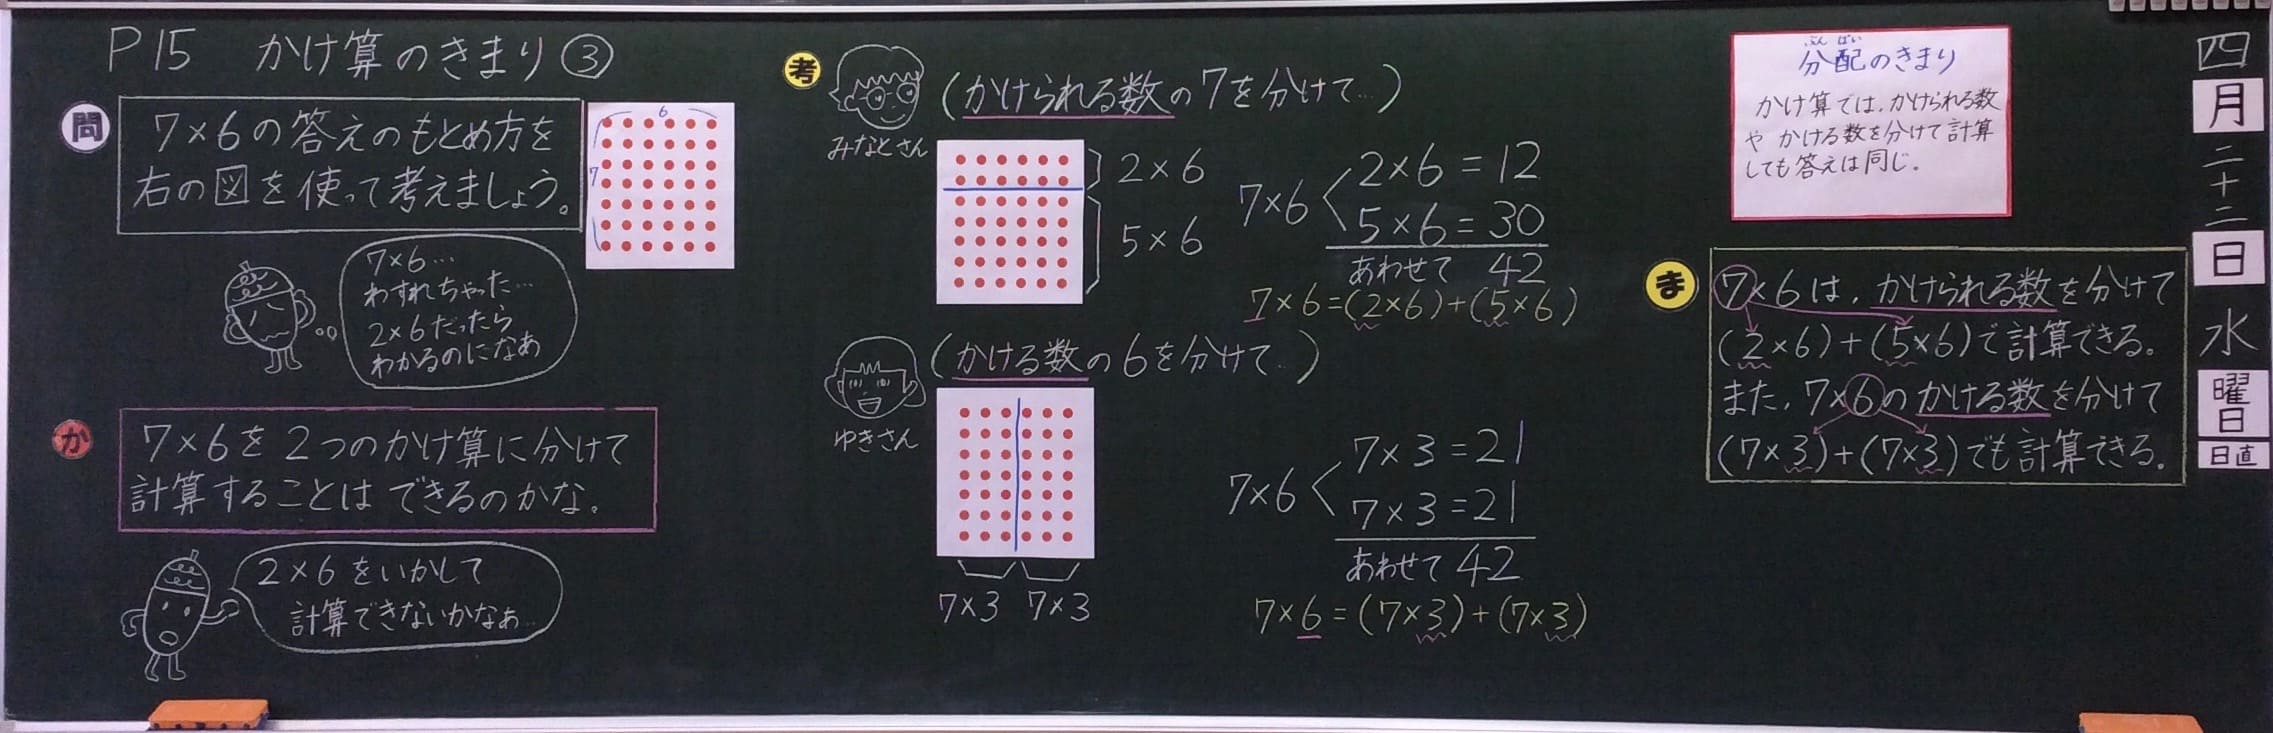 P15 かけ算のきまり③
問
7×6の答えのもとめ方を
右の図を使って考えましょう。
6
7
7×6…
わすれちゃった…
2×6だったら
わかるのになあ
か
7×6を2つのかけ算に分けて
計算することはできるのかな。
2×6をいかして
計算できないかなぁ…
考
みなとさん
(かけられる数の7を分けて…)
2×6
5×6
7×6
2×6=12
5×6=30
あわせて 42
7×6=(2×6)+(5×6)
ゆきさん
(かける数の6を分けて…)
7×3 7×3
7×6
7×3=21
7×3=21
あわせて 42
7×6=(7×3)+(7×3)
ぶん ぱい
分配のきまり
かけ算では、かけられる数
や かける数を分けて計算
しても答えは同じ。
ま
7×6は、かけられる数を分けて
(2×6)+(5×6)で計算できる。
また、7×6のかける数を分けて
(7×3)+(7×3)でも計算できる。
四
月
二十二
日
水
曜日
日直